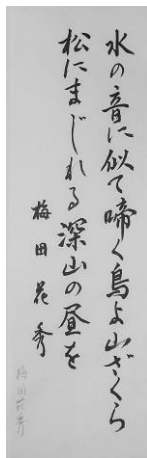 水の音に似て啼く鳥よ山ざくら
松にまじれる深山の昼を
梅田花秀
梅田花秀